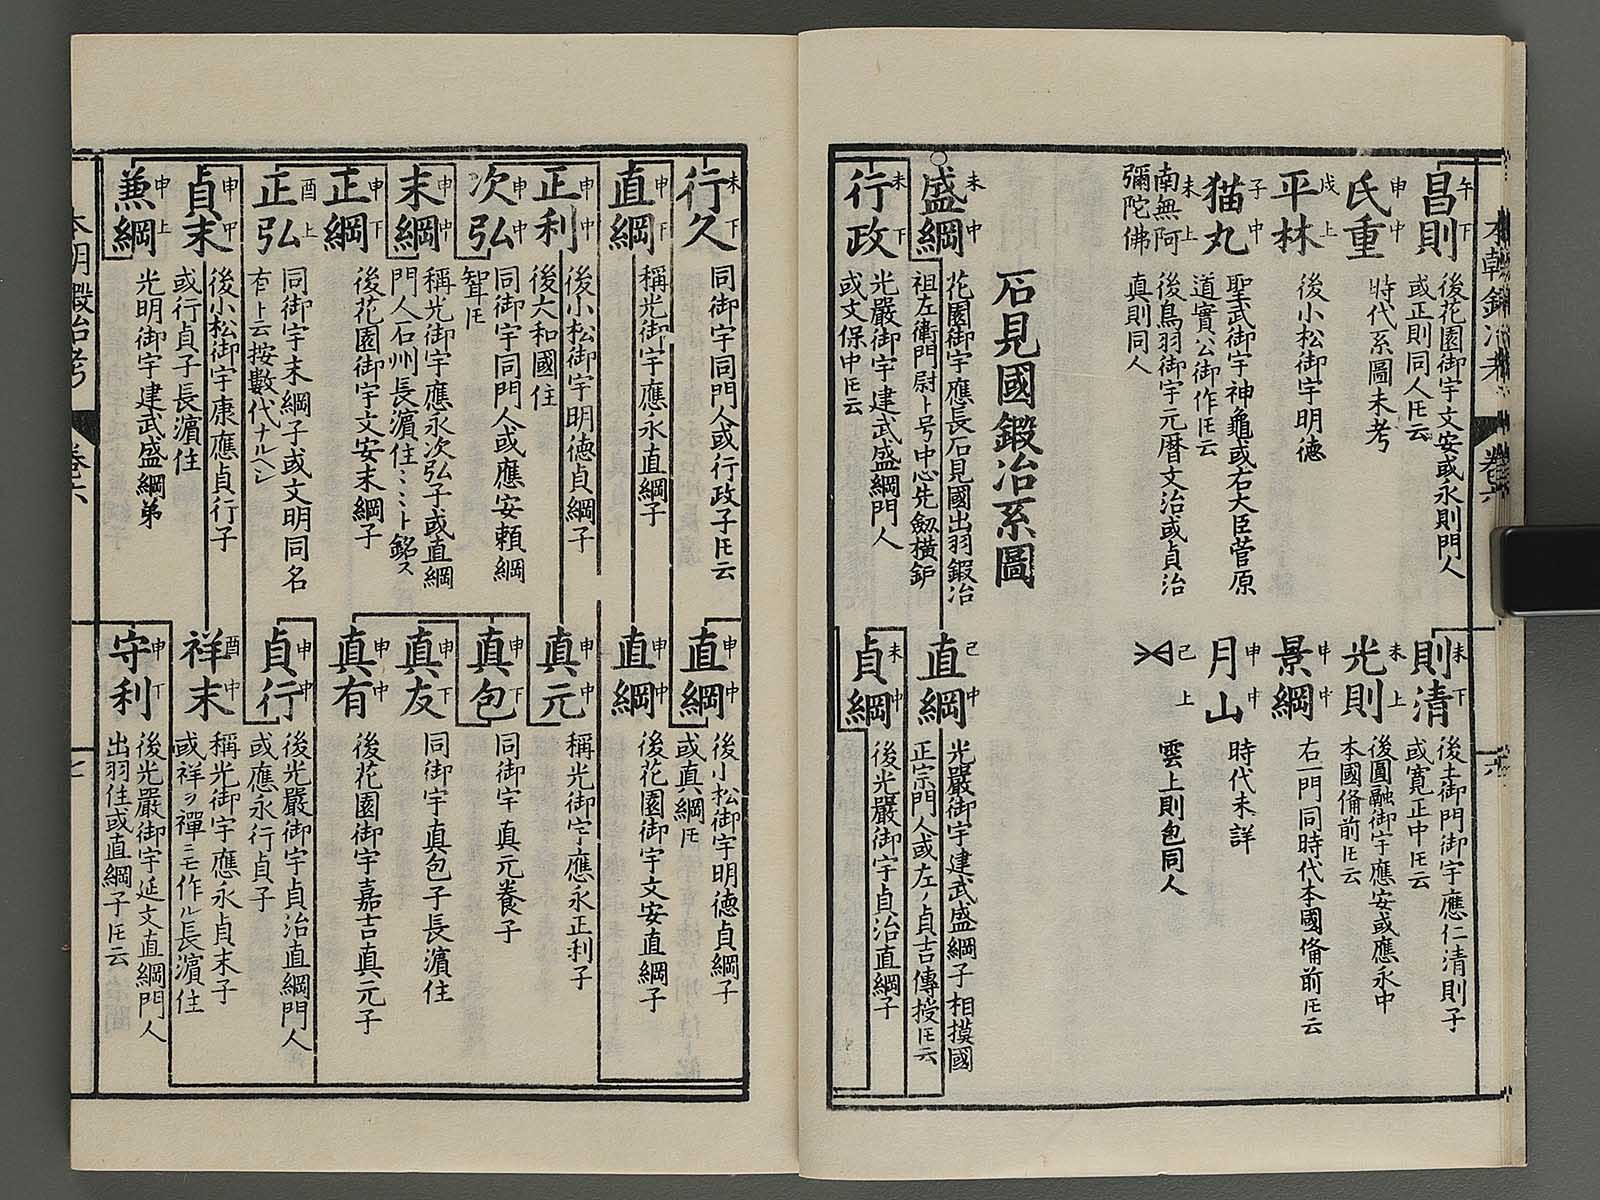 昌則 午下
後花園御宇文安或永則門人
或正則同人㔫云
氏重 申中
時代系圖未考
平林 戌上
後小松御宇明德
猫丸 子中
聖武御宇神龜或右大臣菅原
道實公御作㔫云
南無阿
彌陀佛 未上
後鳥羽御宇元曆文治或貞治
真則同人
則清 未下
後土御門御宇應仁清則子
或寛正中㔫云
光則 未上
後圓融御宇應安或應永中
本國俻前㔫云
景綱 申中
右一門同時代本國俻前㔫云
月山 申中
時代未詳
己上
雲上則包同人
石見國鍛冶系圖
盛綱 未中
花園御宇應長石見國出羽鍜冶
祖左衛門尉ト号中心先劔横鈩
行政 未下
光嚴御宇建武盛綱門人
或文保中㔫云
直綱 己中
光嚴御宇建武盛綱子相摸國
正宗門人或左ノ貞吉傳授㔫云
貞綱 未中
後光嚴御宇貞治直綱子
行久 未下
同御宇同門人或行政子㔫云
直綱 申下
稱光御宇應永直綱子
正利 申中
後小松御宇明德貞綱子
後六和國住
次弘 申中
同御宇同門人或應安賴綱
聟㔫
末綱 申中
稱光御宇應永次弘子或直綱
門人石州長濵住ミミト銘ス
正綱 申下
後花園御宇文安末綱子
正弘 酉上
同御宇末綱子或文明同名
有ト云按數代ナルヘシ
貞末 申中
後小松御宇康應貞行子
或行貞子長濵住
兼綱 申上
光明御宇建武盛綱弟
直綱 申中
後小松御宇明德貞綱子
或真綱㔫
直綱 申中
後花園御宇文安直綱子
真元 申中
稱光御宇應永正利子
真包 申下
同御宇真元養子
真友 申下
同御宇真包子長濵住
真有 申中
後花園御宇嘉吉真元子
貞行 申中
後光嚴御宇貞治直綱門人
或應永行貞子
祥末 酉中
稱光御宇應永貞末子
或祥ヲ禪ニモ作ル長濵住
守利 申下
後光嚴御宇延文直綱門人
出羽住或直綱子㔫云
本朝鍛冶考
卷六